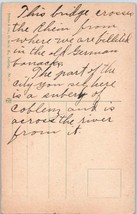 This bridge cross
the them from
where we are billeted
in the old German
barracks.
The part of the
city you see, here
is a subery of
Coblenz and is
across the river
from it.